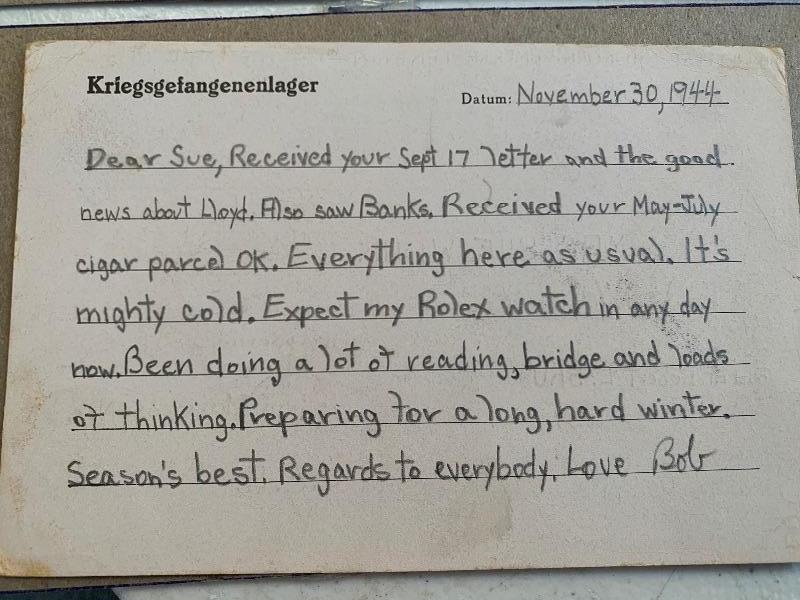 Kriegsgefangenenlager
Datum: November 30, 1944
Dear Sue, Received your Sept 17 letter and the good
news about Lloyd. Also saw Banks. Received your May-July
cigar parcel OK. Everything here as usual. It's
mighty cold. Expect my Rolex watch in any day
now. Been doing a lot of reading, bridge and loads
of thinking. Preparing for a long, hard winter.
Season's best. Regards to everybody. Love Bob